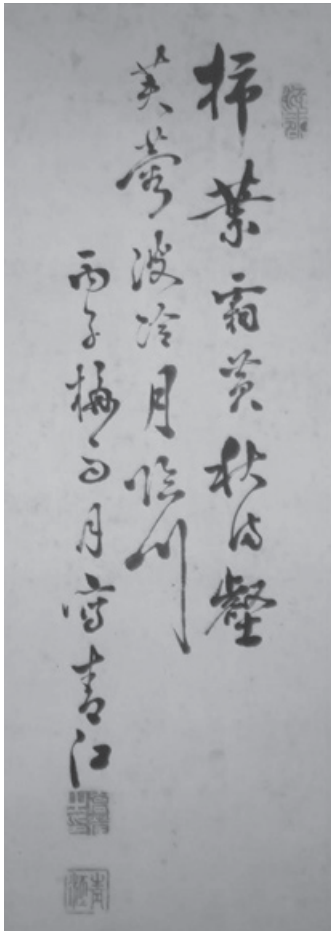 柿葉霜黄秋満壑
芙蓉波冷月臨川
丙子梅雨月寫青江